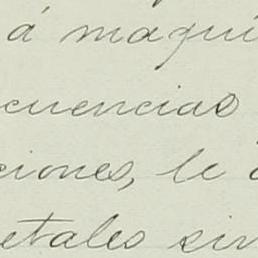 á maqui
cuencias
ciones, le
etales sin